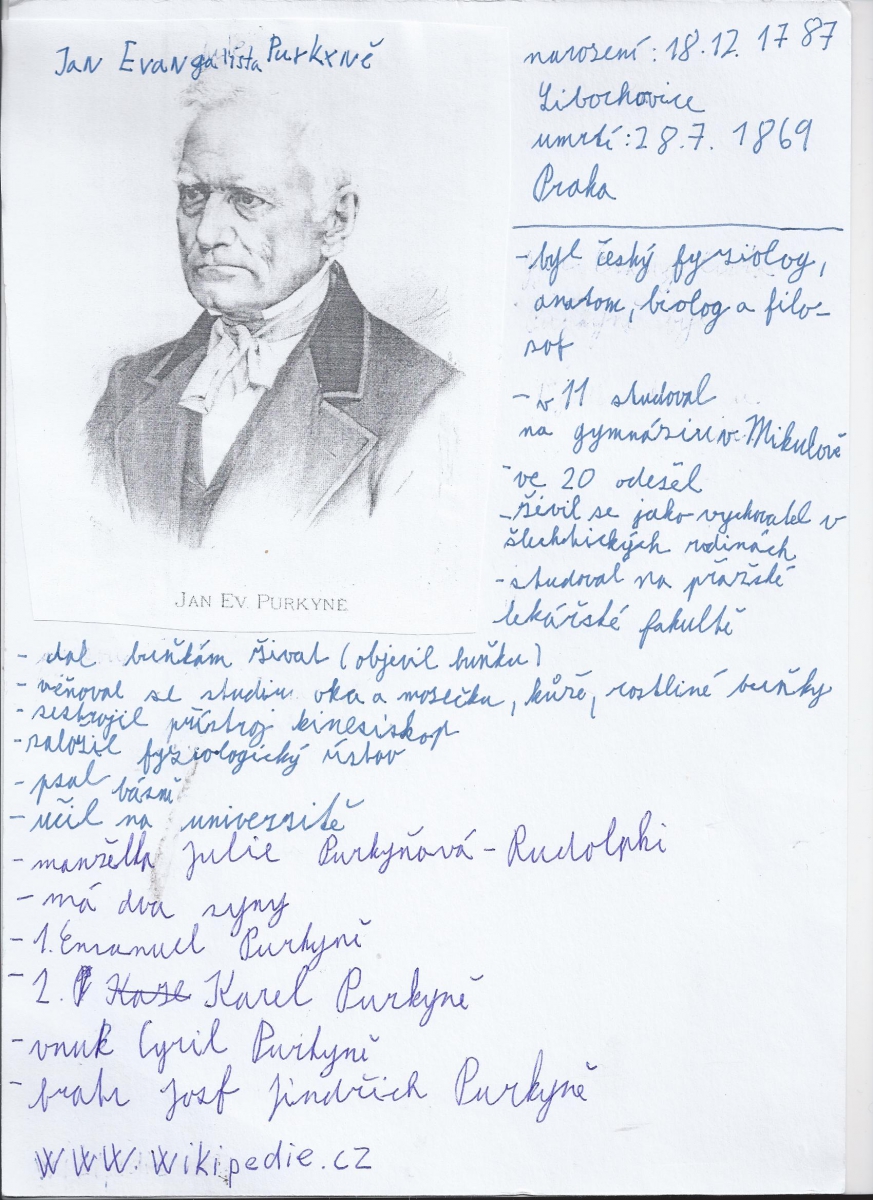 Jan Evangalista Purkyně
narození: 18.12. 1787
Libochovice
umrtí: 28.7. 1869
Praha
- byl český fyziolog,
anatom, biolog a filo-
sof
- v 11 studoval
na gymnáziu v Mikulově
- ve 20 odešěl
- živil se jako vychovatel v
šlechtických rodinách
- studoval na pražské
lekářské fakultě
JAN EV. PURKYNĚ
- dal buňkám život (objevil buňku)
- věňoval se studiu oka a mozečku, kůže, rostliné buňky
- sestrojil přístroj kinesiskop
- založil fyziologický ústav
- psal básně
- učil na universitě
- manželka Julie Purkyňová - Rudolphi
- má dva syny
- 1. Emanuel Purkyně
- 2. Karel Purkyně
- vnuk Cyril Purkyně
- bratr Josf Jindřich Purkyně
WWW.Wikipedie.cz